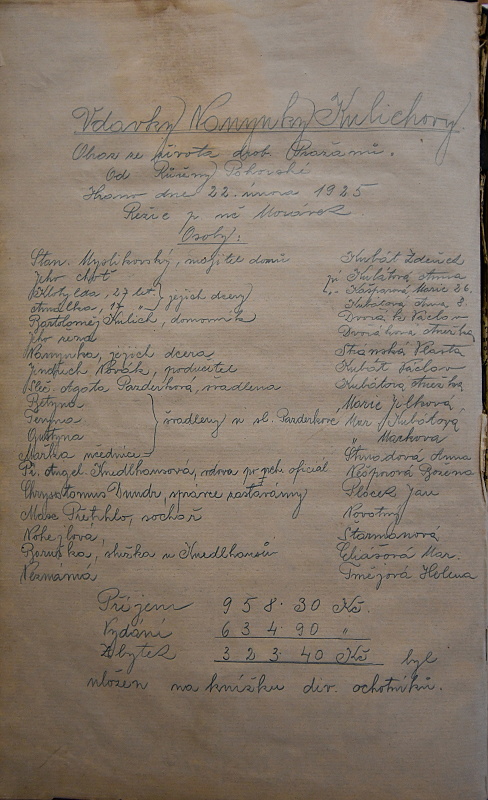 Vdavky Nanynky Kulichovy.
Obraz ze života drob. Pražanů.
Od Růženy Pohorské
Hráno dne 22. února 1925
Režie p. uč. Morávek
Osoby:
Stan. Myslikovský, majitel domu Kubát Zdeněk
jeho choť pí Kubátová Anna
Klotylda, 27 let Kašparová Marie 26.
Amálka, 17 " jejich dcery Kubátová Anna 8.
Bartoloměj Kulich, domovník Dvořák Václav
jeho žena Dvořáková Anežka
Nanynka, jejich dcera Stránská Vlasta
Jindřich Novák, poručitel Kubát Václav
Sleč. Agáta Parderková, švadlena Kubátová Anežka
Betyna Marie Jelková
Teryna švadleny u sl. Parderkové Mar. Kubátová
Gustyna " Markova
Márka učednice Stuadová Anna
Pí. Angel. Knedlhansová, vdova po pošt. oficiál Kašparová Božena
Chrysostomus Dundr, správce zastavárny Plocek Jan
Max Přetrhlo, sochař Novotný
Nohejlova, Šturmanová
Boruška, služka u Knedlhansů Eliášová Mar.
Neznámá Tmějová Helena
Příjem 958·30 Kč.
Vydání 634·90 "
Zbytek 323·40 Kč byl
uložen na knížku div. ochotníků.